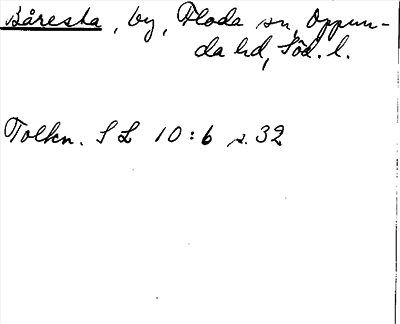 Båresta, by, Floda sn, Oppun-
da hd, Söd. l.
Tolkn. S L 10:6 s. 32